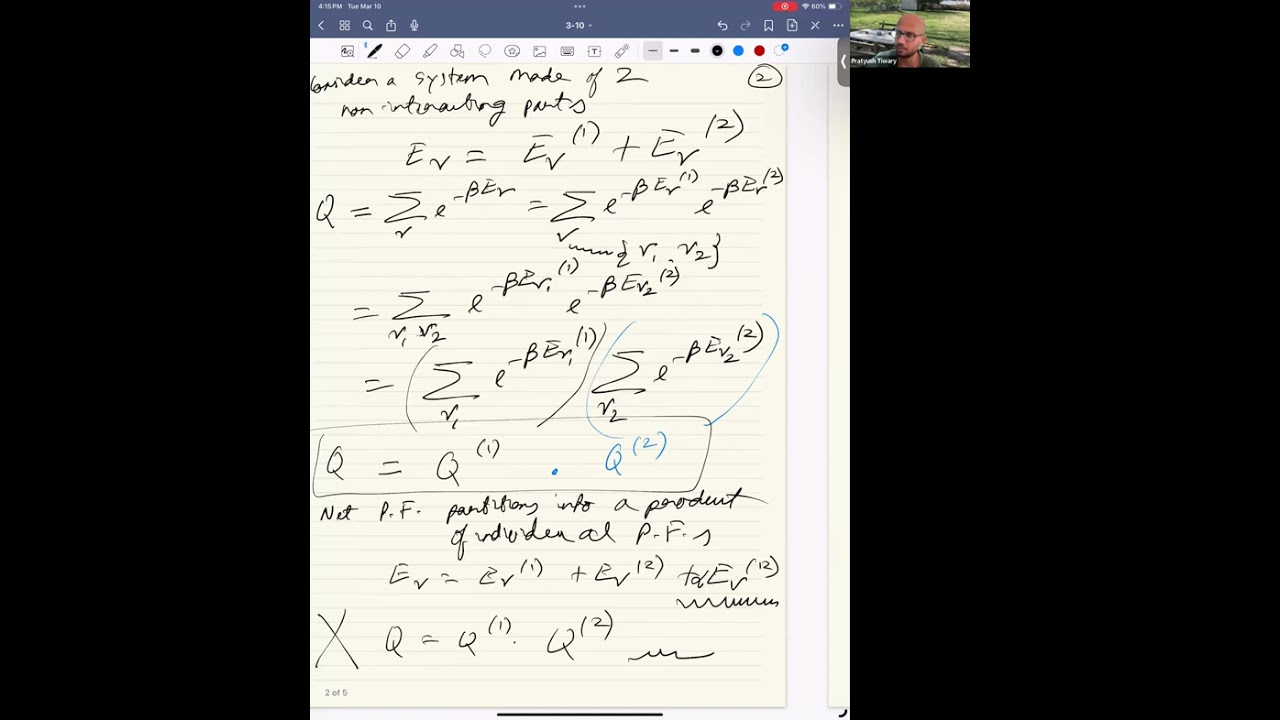 4:15 PM Tue Mar 10
60%
3-10
Pratyush Tiwary
Consider a system made of 2
non-interacting parts
②
E_ν = E_ν^(1) + E_ν^(2)
Q = Σ_ν e^(-βE_ν) = Σ_ν e^(-βE_ν^(1)) e^(-βE_ν^(2))
{ν₁, ν₂}
= Σ_(ν₁ ν₂) e^(-βE_ν₁^(1)) e^(-βE_ν₂^(2))
= (Σ_ν₁ e^(-βE_ν₁^(1))) (Σ_ν₂ e^(-βE_ν₂^(2)))
Q = Q^(1) . Q^(2)
Net P.F. partitions into a product
of individual P.F.s
E_ν = E_ν^(1) + E_ν^(2) + αE_ν^(12)
X Q = Q^(1) . Q^(2)
2 of 5